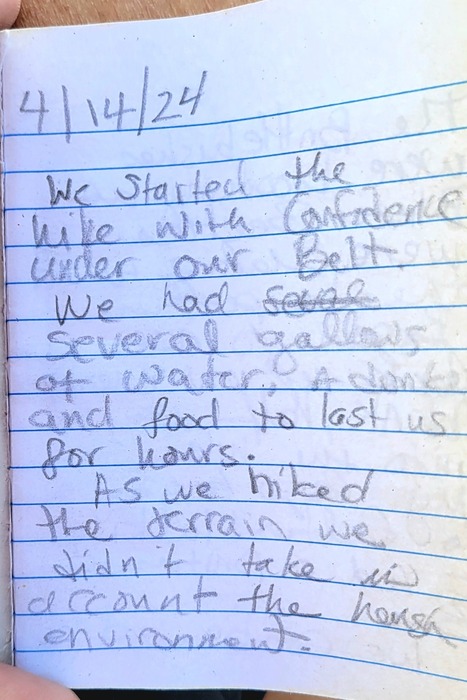 4/14/24
We started the
hike with Confidence
under our Belt.
We had
several gallons
of water, A donkey
and food to last us
for hours.
As we hiked
the terrain we
didn't take in
account the harsh
environment.